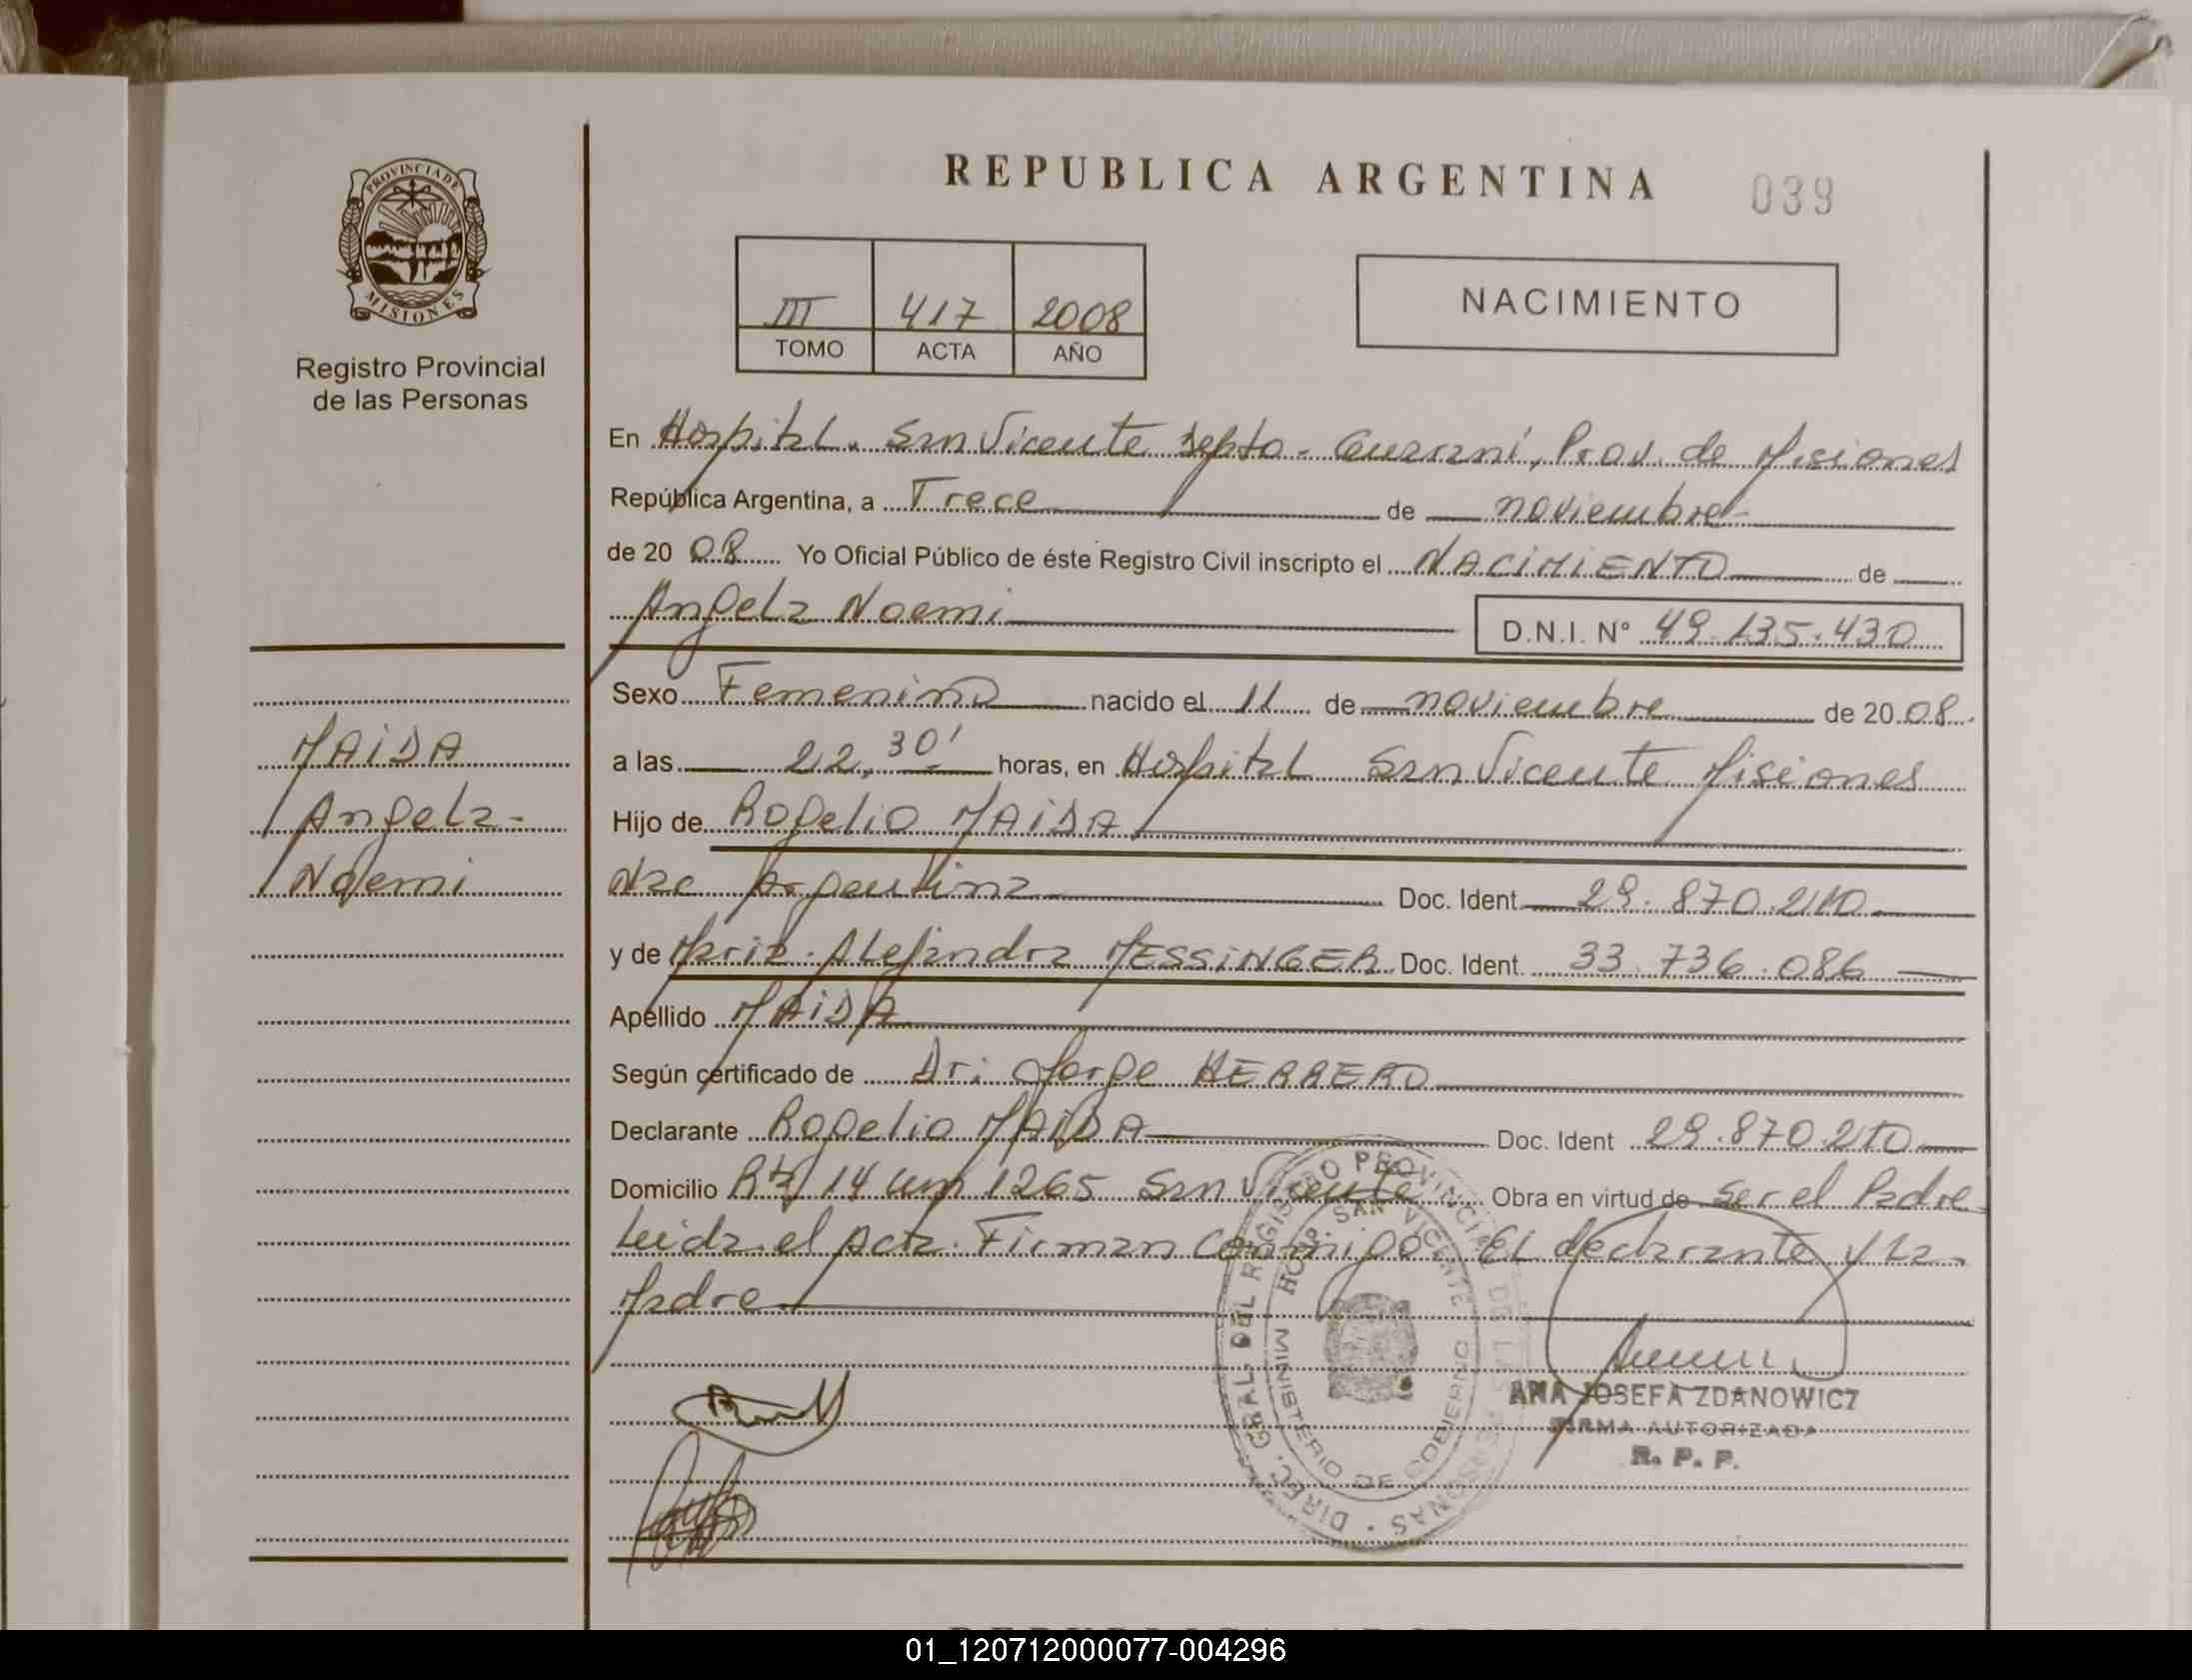 REPUBLICA ARGENTINA 039
PROVINCIA DE
MISIONES
Registro Provincial
de las Personas
III 417 2008
TOMO ACTA AÑO
NACIMIENTO
En Hospital. San Vicente Depto- Guarani, Prov. de Misiones
República Argentina, a Trece de noviembre
de 20 08 Yo Oficial Público de éste Registro Civil inscripto el NACIMIENTO de
Angela Noemi D.N.I. N° 49.135.430
Sexo Femenino nacido el 11 de noviembre de 20 08.
a las 22,30' horas, en Hospital San Vicente Misiones
Hijo de Rogelio MAIDA
Nac Argentina Doc. Ident. 29.870.210
y de Maria Alejandra MESSINGER Doc. Ident. 33.736.086
Apellido MAIDA
Según certificado de Dr: Jorge HERRERO
Declarante Rogelio MAIDA Doc. Ident 29.870.210
Domicilio Rta/14 Km 1265 San Vicente Obra en virtud de Ser el Padre
Leida el Acta. Firman conmigo. El declarante y La
Madre
MAIDA
Angela-
Noemi
DIREC. GRAL. DEL REGISTRO PROVINCIAL DE LAS PERSONAS
HOSP. SAN VICENTE
MINISTERIO DE GOBIERNO
ANA JOSEFA ZDANOWICZ
FIRMA AUTORIZADA
R. P. P.
01_120712000077-004296